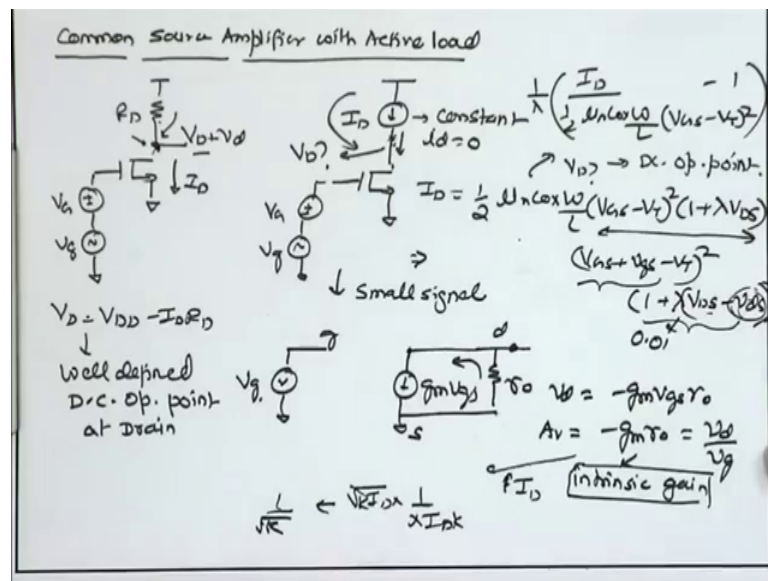 Common Source Amplifier with Active load
R_D
V_D+v_d
I_D
V_G
v_g
V_D = V_DD - I_D R_D
↓
Well defined
D.C. Op. point
at Drain
I_D
→ Constant
i_d = 0
V_D?
V_G
v_g
⇒
↓ Small signal
1/λ ( I_D / (1/2 μnCox W/L (V_GS - V_T)²) - 1 )
V_D? → D.C. op. point.
I_D = 1/2 μnCox W/L (V_GS - V_T)² (1 + λV_DS)
(V_GS + v_gs - V_T)²
(1 + λ(V_DS - v_ds)
0.01
g
v_g
g_m v_gs
r_o
d
s
v_d = -g_m v_gs r_o
A_v = -g_m r_o = v_d / v_g
intrinsic gain
I_D
1/√k ← √(k I_D) × 1/(λ I_D k)